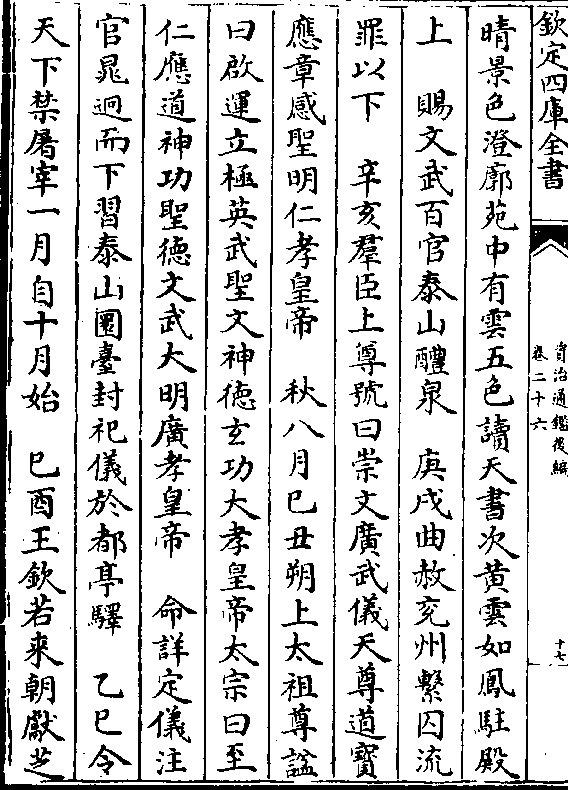 欽定四庫全書
資治通鑑後編
卷二十六
十七
晴景色澄廓苑中有雲五色讀天書次黄雲如鳳駐殿
上　賜文武百官泰山醴泉　庚戌曲赦兖州繫囚流
罪以下　辛亥羣臣上尊號曰崇文廣武儀天尊道寳
應章感聖明仁孝皇帝　秋八月己丑朔上太祖尊諡
曰啟運立極英武聖文神徳玄功大孝皇帝太宗曰至
仁應道神功聖徳文武大明廣孝皇帝　命詳定儀注
官晁迥而下習泰山圜臺封祀儀於都亭驛　乙巳令
天下禁屠宰一月自十月始　己酉王欽若來朝獻芝